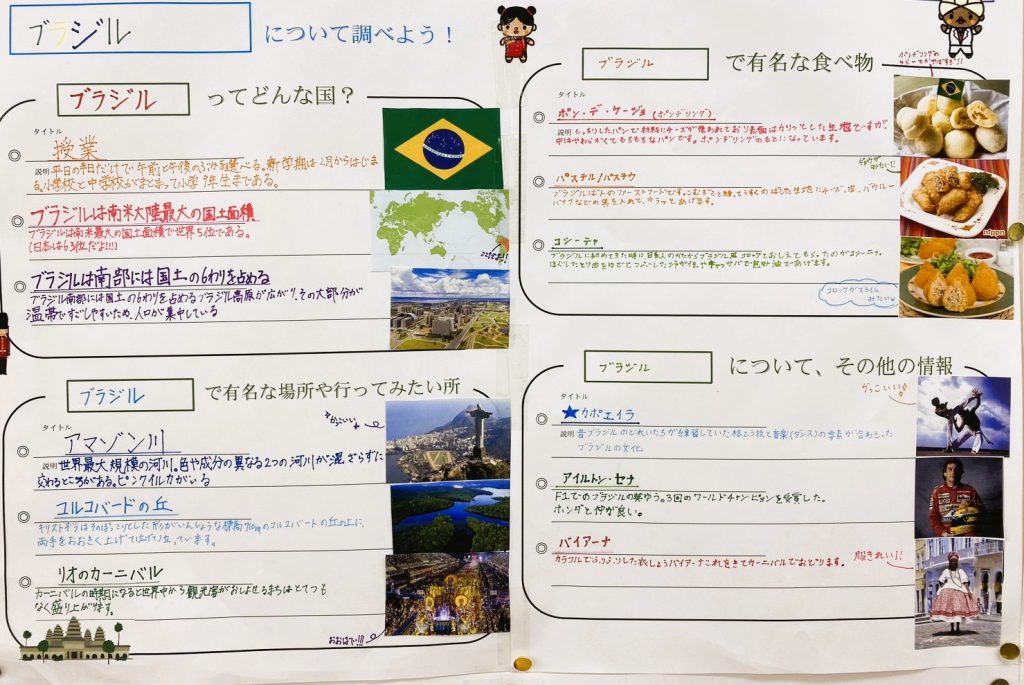 ブラジル について調べよう！
ブラジル ってどんな国？
タイトル
授業
説明 平日の半日だけで午前と午後のぶかを選べる。新学期は2月からはじま
る。小学校と中学校がまとまって小学9年生まである。
ブラジルは南米大陸最大の国土面積
ブラジルは南米最大の国土面積で世界5位である。
(日本は63位だよ!!!)
ブラジルは南部には国土の6わりを占める
ブラジル南部には国土の6わりを占めるブラジル高原が広がり、その大部分が
温帯ですごしやすいため、人口が集中している
ブラジル で有名な場所や行ってみたい所
かっこいい
タイトル
アマゾン川
説明 世界最大規模の河川。色や成分の異なる2つの河川が混ざらずに
交わるところがある。ピンクイルカがいる
コルコバードの丘
キリストぞうは
コルコバードの丘の上に、
両手をおおきく上げて
立っています。
リオのカーニバル
カーニバルの時期になると世界中から観光客がおしよせるまちはとても
なく盛り上がります。
おおはでい!!!
ブラジル で有名な食べ物
タイトル
ポン・デ・ケージョ (ポンデリング)
説明 もっちりしたパンで材料にチーズが使われており表面はカリッとした生地ですが、
中はやわらかくてもちもちなパンです。ポンデリングのもとになっています。
パステル/パステウ
ブラジル
のファーストフードです。こむぎこを練ってうすくのばした生地にチーズ、
バナナなどの具を入れて、カラッとあげます。
コシーニャ
nippn
コロッケがスライム
みたいw
ブラジル について、その他の情報
かっこいい!
タイトル
★カポエイラ
説明 昔ブラジルのどれいたちが練習していた格とう技と音楽(ダンス)の要素が合わさった
ブラジルの文化
アイルトン・セナ
F1でのブラジルの英ゆう。3回のワールドチャンピョンを受賞した。
ホンダと仲が良い。
バイアーナ
服きれい!!
カラフルでふりふりした衣しょうバイアーナこれをきてカーニバルでおどります。